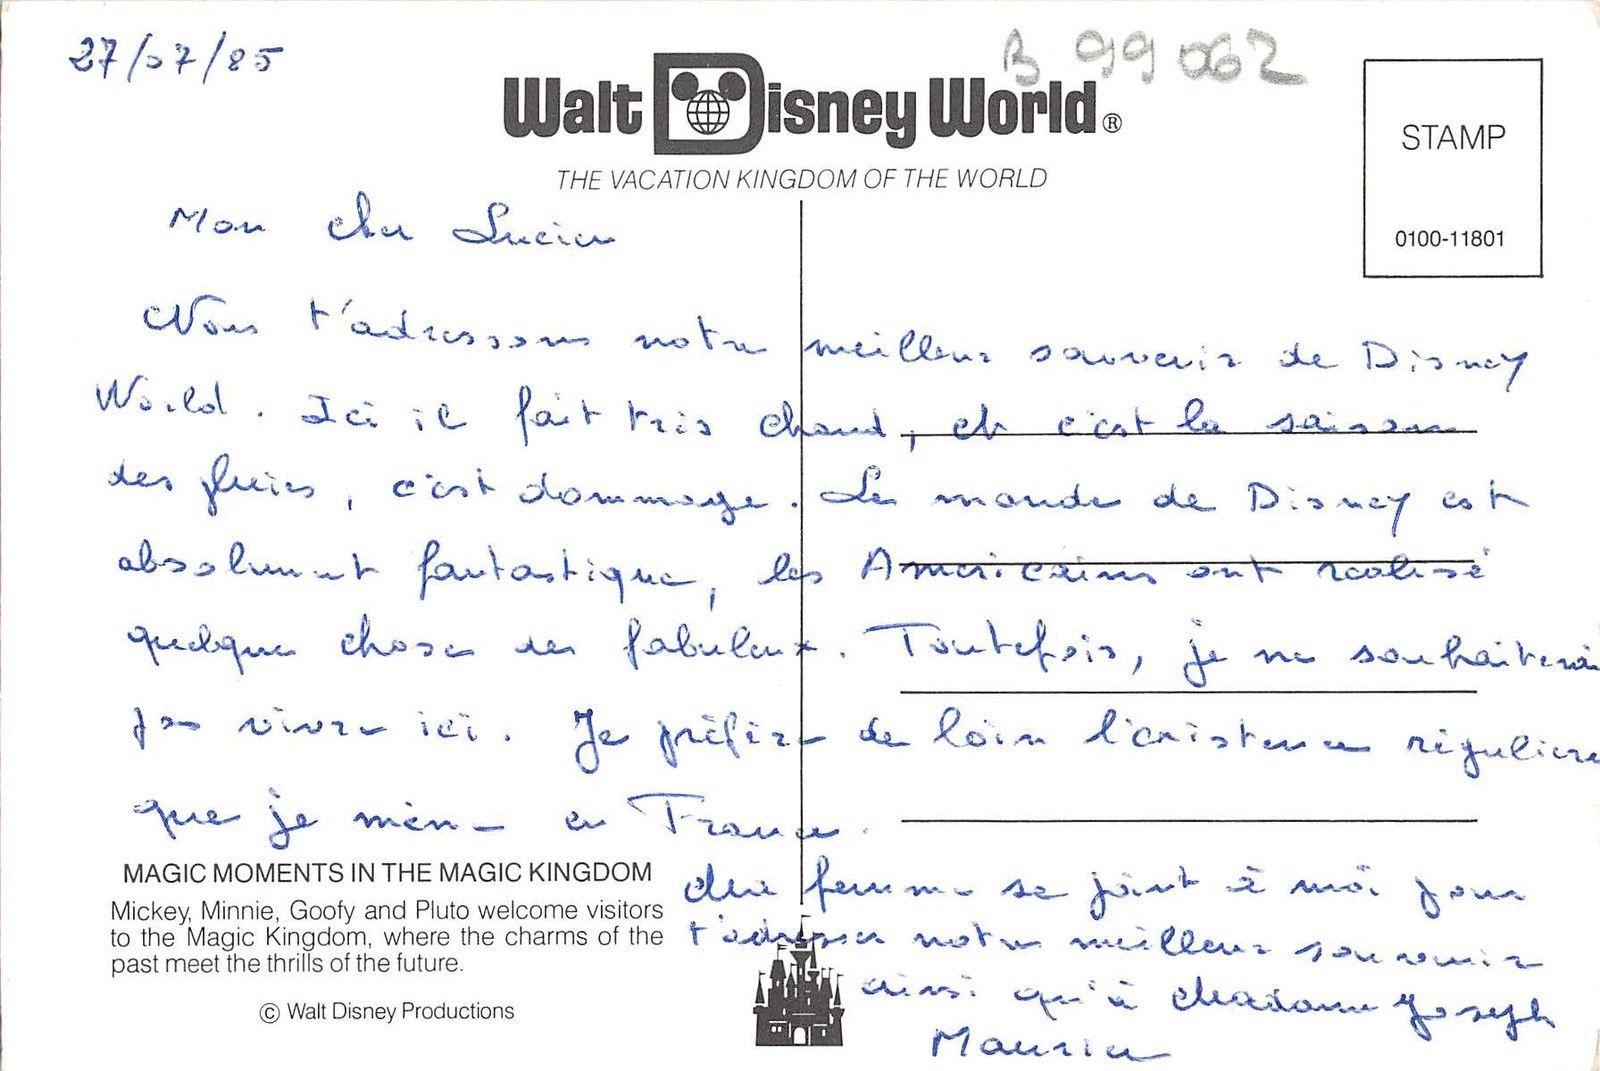 27/07/85
B 99 062
Walt Disney World®
THE VACATION KINGDOM OF THE WORLD
STAMP
0100-11801
Mon cher Lucien
Nous t'adressons notre meilleur souvenir de Disney
World. Ici il fait très chaud, et c'est la saison
des pluies, c'est dommage. Le monde de Disney est
absolument fantastique, les Américains ont réalisé
quelque chose de fabuleux. Toutefois, je ne souhaiterai
pas vivre ici. Je préfère de loin l'existence régulière
que je mène en France.
Ma femme se joint à moi pour
t'adresser notre meilleur souvenir
ainsi qu'à Madame Joseph
Maurice
MAGIC MOMENTS IN THE MAGIC KINGDOM
Mickey, Minnie, Goofy and Pluto welcome visitors
to the Magic Kingdom, where the charms of the
past meet the thrills of the future.
© Walt Disney Productions